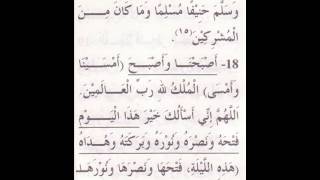 وَسَلَّمَ حَنِيْفًا مُسْلِمًا وَمَا كَانَ مِـــنَ
الْمُشْرِكِيْنَ(١٥).
18- أَصْبَحْنَا وَأَصْبَحَ (أَمْسَيْنَا
وَأَمْسَى) الْمُلْكُ للهِ رَبِّ الْعَالَمِيْنَ.
اللَّهُمَّ إِنِّي أَسْأَلُكَ خَيْرَ هَذَا الْيَوْمِ
فَتْحَهُ وَنَصْرَهُ وَنُوْرَهُ وَبَرَكَتَهُ وَهُدَاهُ
(هَذِهِ اللَّيْلَةِ، فَتْحَهَا وَنَصْرَهَا وَنُوْرَهَـ